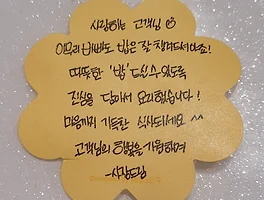 사랑하는 고객님 ☺
아무리 바빠도 밥은 잘 챙겨드셔야죠!
따뜻한 '밥' 드실 수 있도록
진심을 담아서 요리했습니다!
마음까지 가득찬 식사되세요 ^^
고객님의 행복을 기원하며
-사장드림